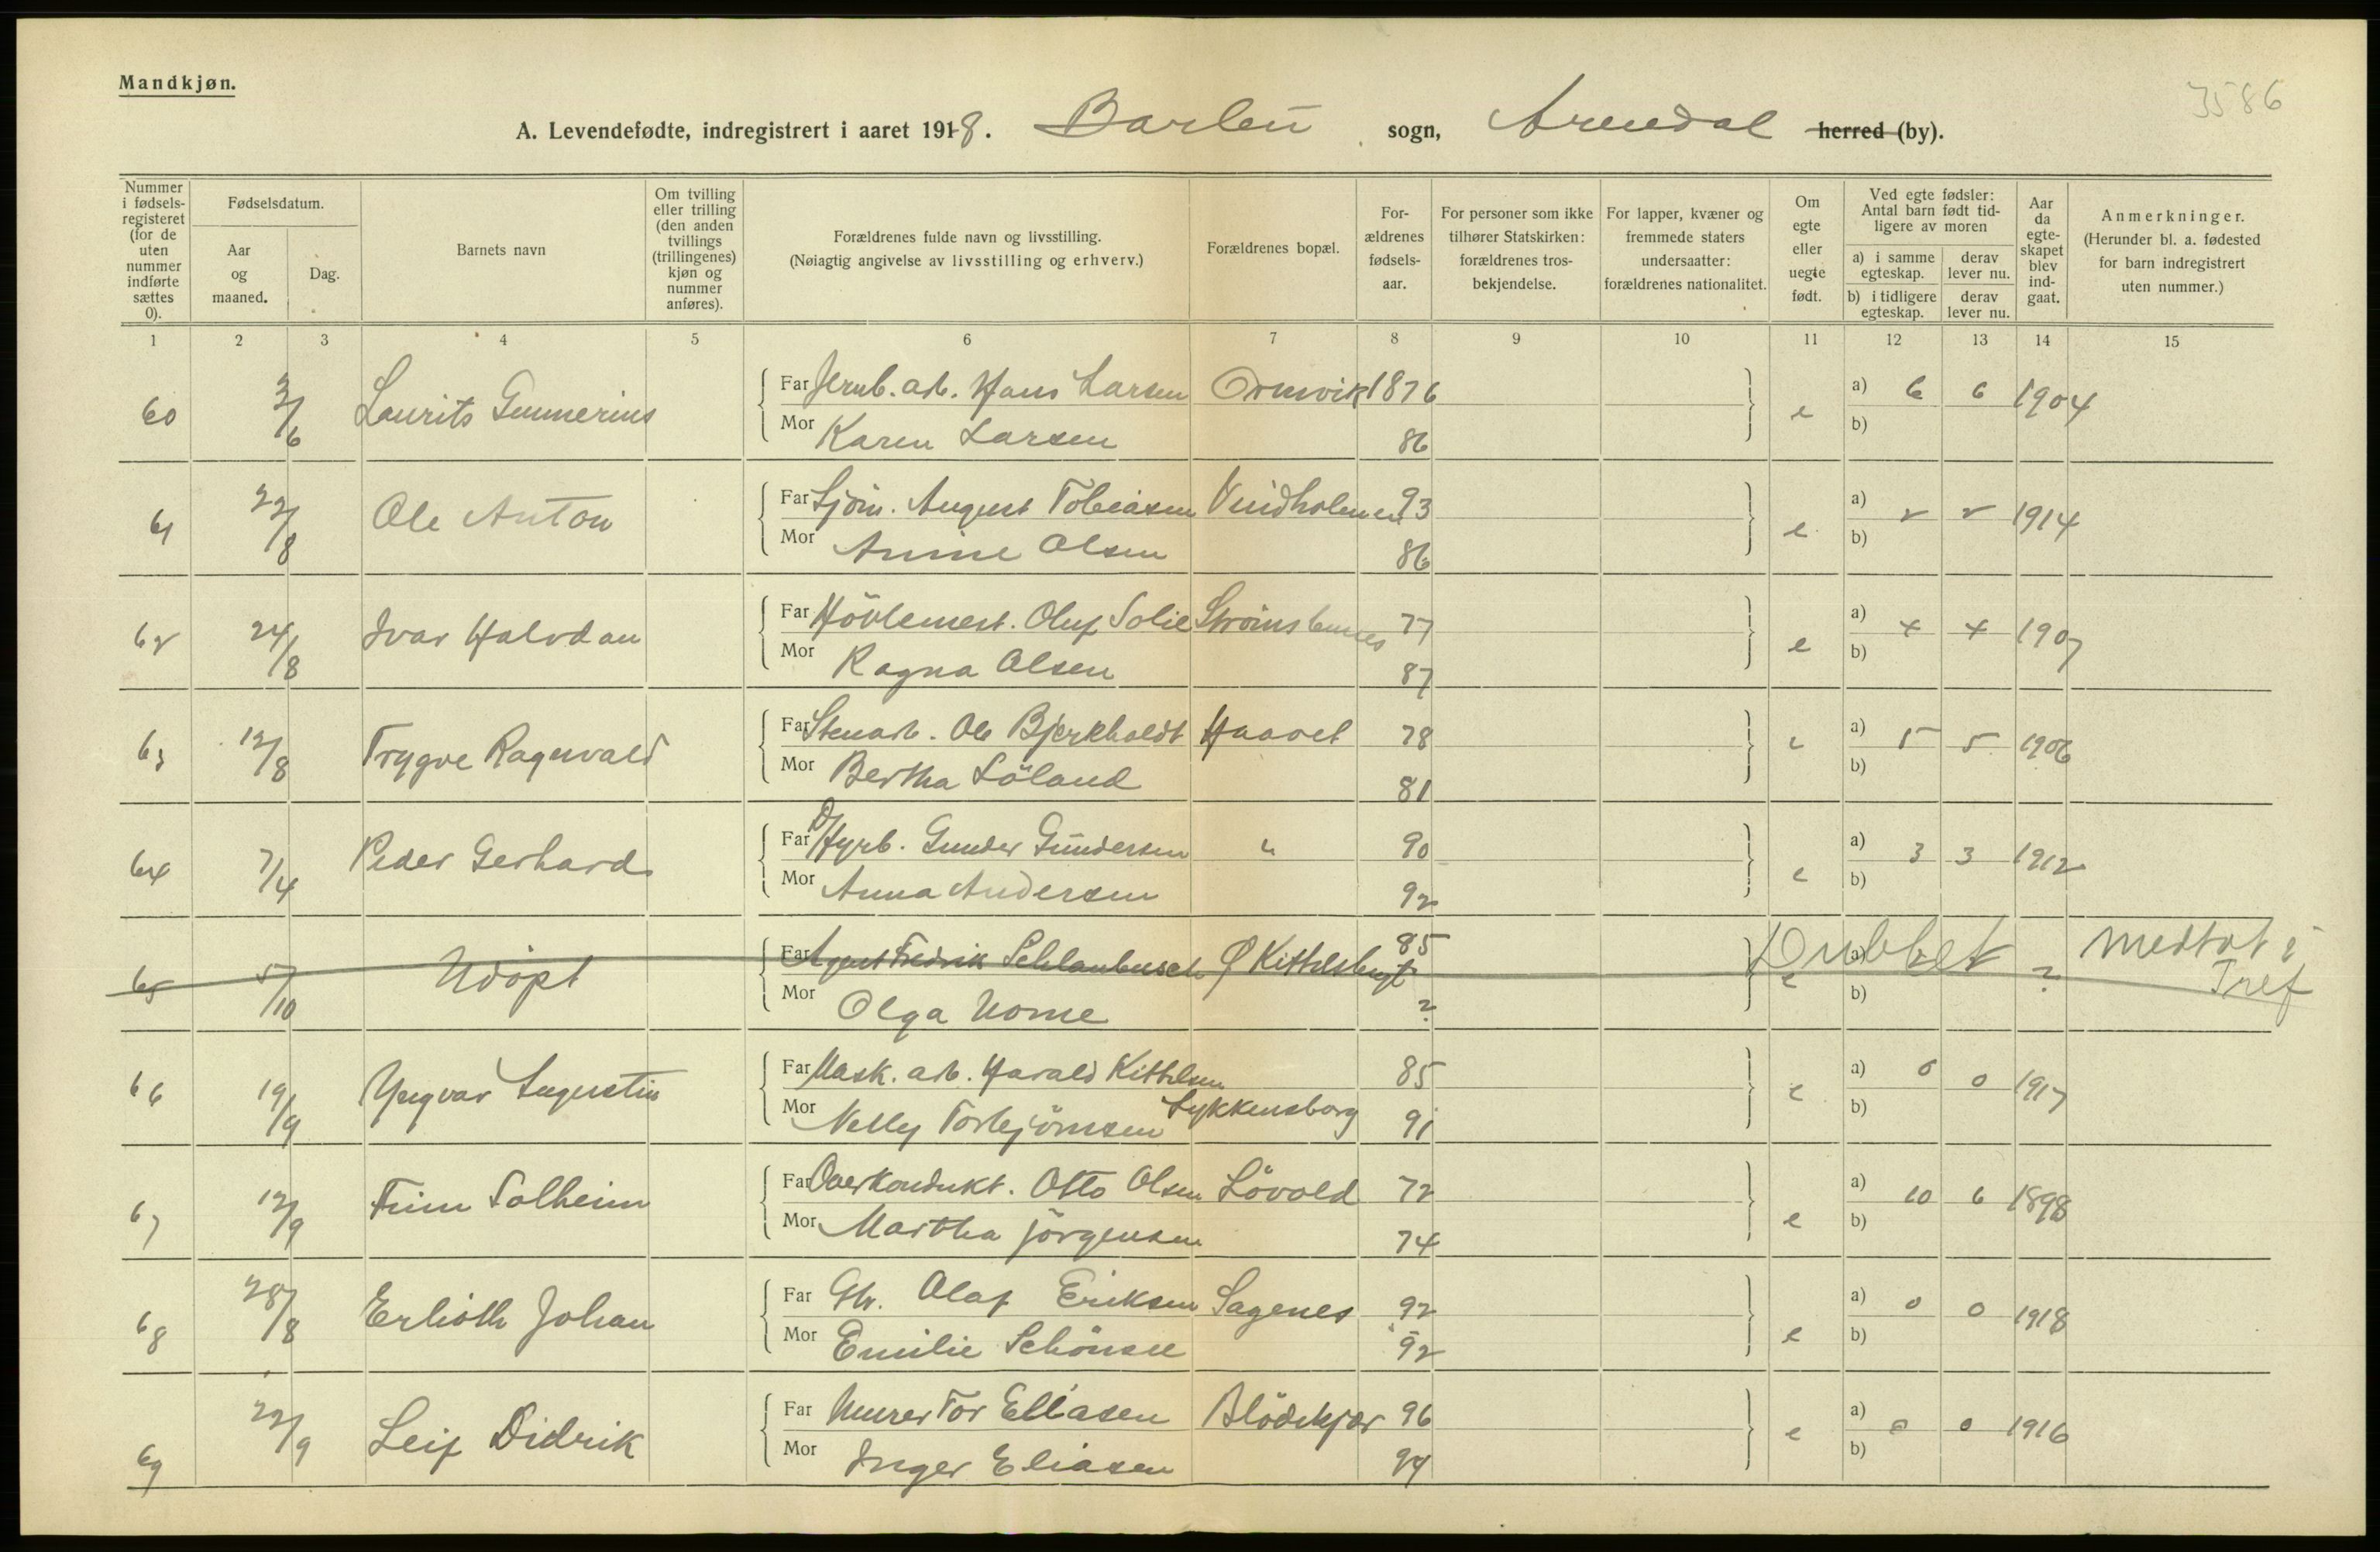 Mandkjøn.
3586
A. Levendefødte, indregistrert i aaret 1918. Barbu sogn, Arendal herred (by).
Nummer i fødselsregisteret (for de uten nummer indførte sættes 0).
Fødselsdatum.
Aar og maaned.
Dag.
Barnets navn
Om tvilling eller trilling (den anden tvillings (trillingenes) kjøn og nummer anføres).
Forældrenes fulde navn og livsstilling.
(Nøiagtig angivelse av livsstilling og erhverv.)
Forældrenes bopæl.
Forældrenes fødselsaar.
For personer som ikke tilhører Statskirken: forældrenes trosbekjendelse.
For lapper, kvæner og fremmede staters undersaatter: forældrenes nationalitet.
Om egte eller uegte født.
Ved egte fødsler: Antal barn født tidligere av moren
a) i samme egteskap.
derav lever nu.
b) i tidligere egteskap.
derav lever nu.
Aar da egteskapet blev indgaat.
Anmerkninger.
(Herunder bl. a. fødested for barn indregistrert uten nummer.)
1 2 3 4 5 6 7 8 9 10 11 12 13 14 15
60 3/6 Laurits Gunnerius Far Jernb. arb. Hans Larsen Ormvik 1876 e a) 6 6 1904
Mor Karen Larsen 86 b)
61 22/8 Ole Anton Far Sjöm. August Tobiasen Vindholmen 93 e a) 2 2 1914
Mor Anine Olsen 86 b)
62 24/8 Ivar Halvdan Far Hövlemest. Oluf Solie Strömsbunes 77 e a) 4 4 1907
Mor Ragna Olsen 87 b)
63 12/8 Trygve Ragnvald Far Stenarb. Ole Bjerkholdt Haavet 78 e a) 5 5 1906
Mor Bertha Löland 81 b)
64 7/4 Peder Gerhard Far Hyrb. Gunder Gundersen " 90 e a) 3 3 1912
Mor Anna Andersen 92 b)
65 5/10 Udöpt Far Agent Fredrik Schlanbusch Ø Kittelsbugt 85 e Dubbelt ? Medtat i Tref
Mor Olga Nome ? b)
66 19/9 Yngvar Augustin Far Mask. arb. Harald Kittilsen 85 e a) 0 0 1917
Mor Nelly Torbjörnsen Lykkensborg 91 b)
67 12/9 Finn Solheim Far Overkondukt. Otto Olsen Lövold 72 e a) 10 6 1898
Mor Martha Jörgensen 74 b)
68 28/8 Erlioth Johan Far Gb. Olaf Eriksen Sagenes 92 e a) 0 0 1918
Mor Emilie Schönsee 92 b)
69 22/9 Leif Didrik Far Murer Tor Eliasen Blödekjær 96 e a) 0 0 1916
Mor Inger Eliasen 94 b)